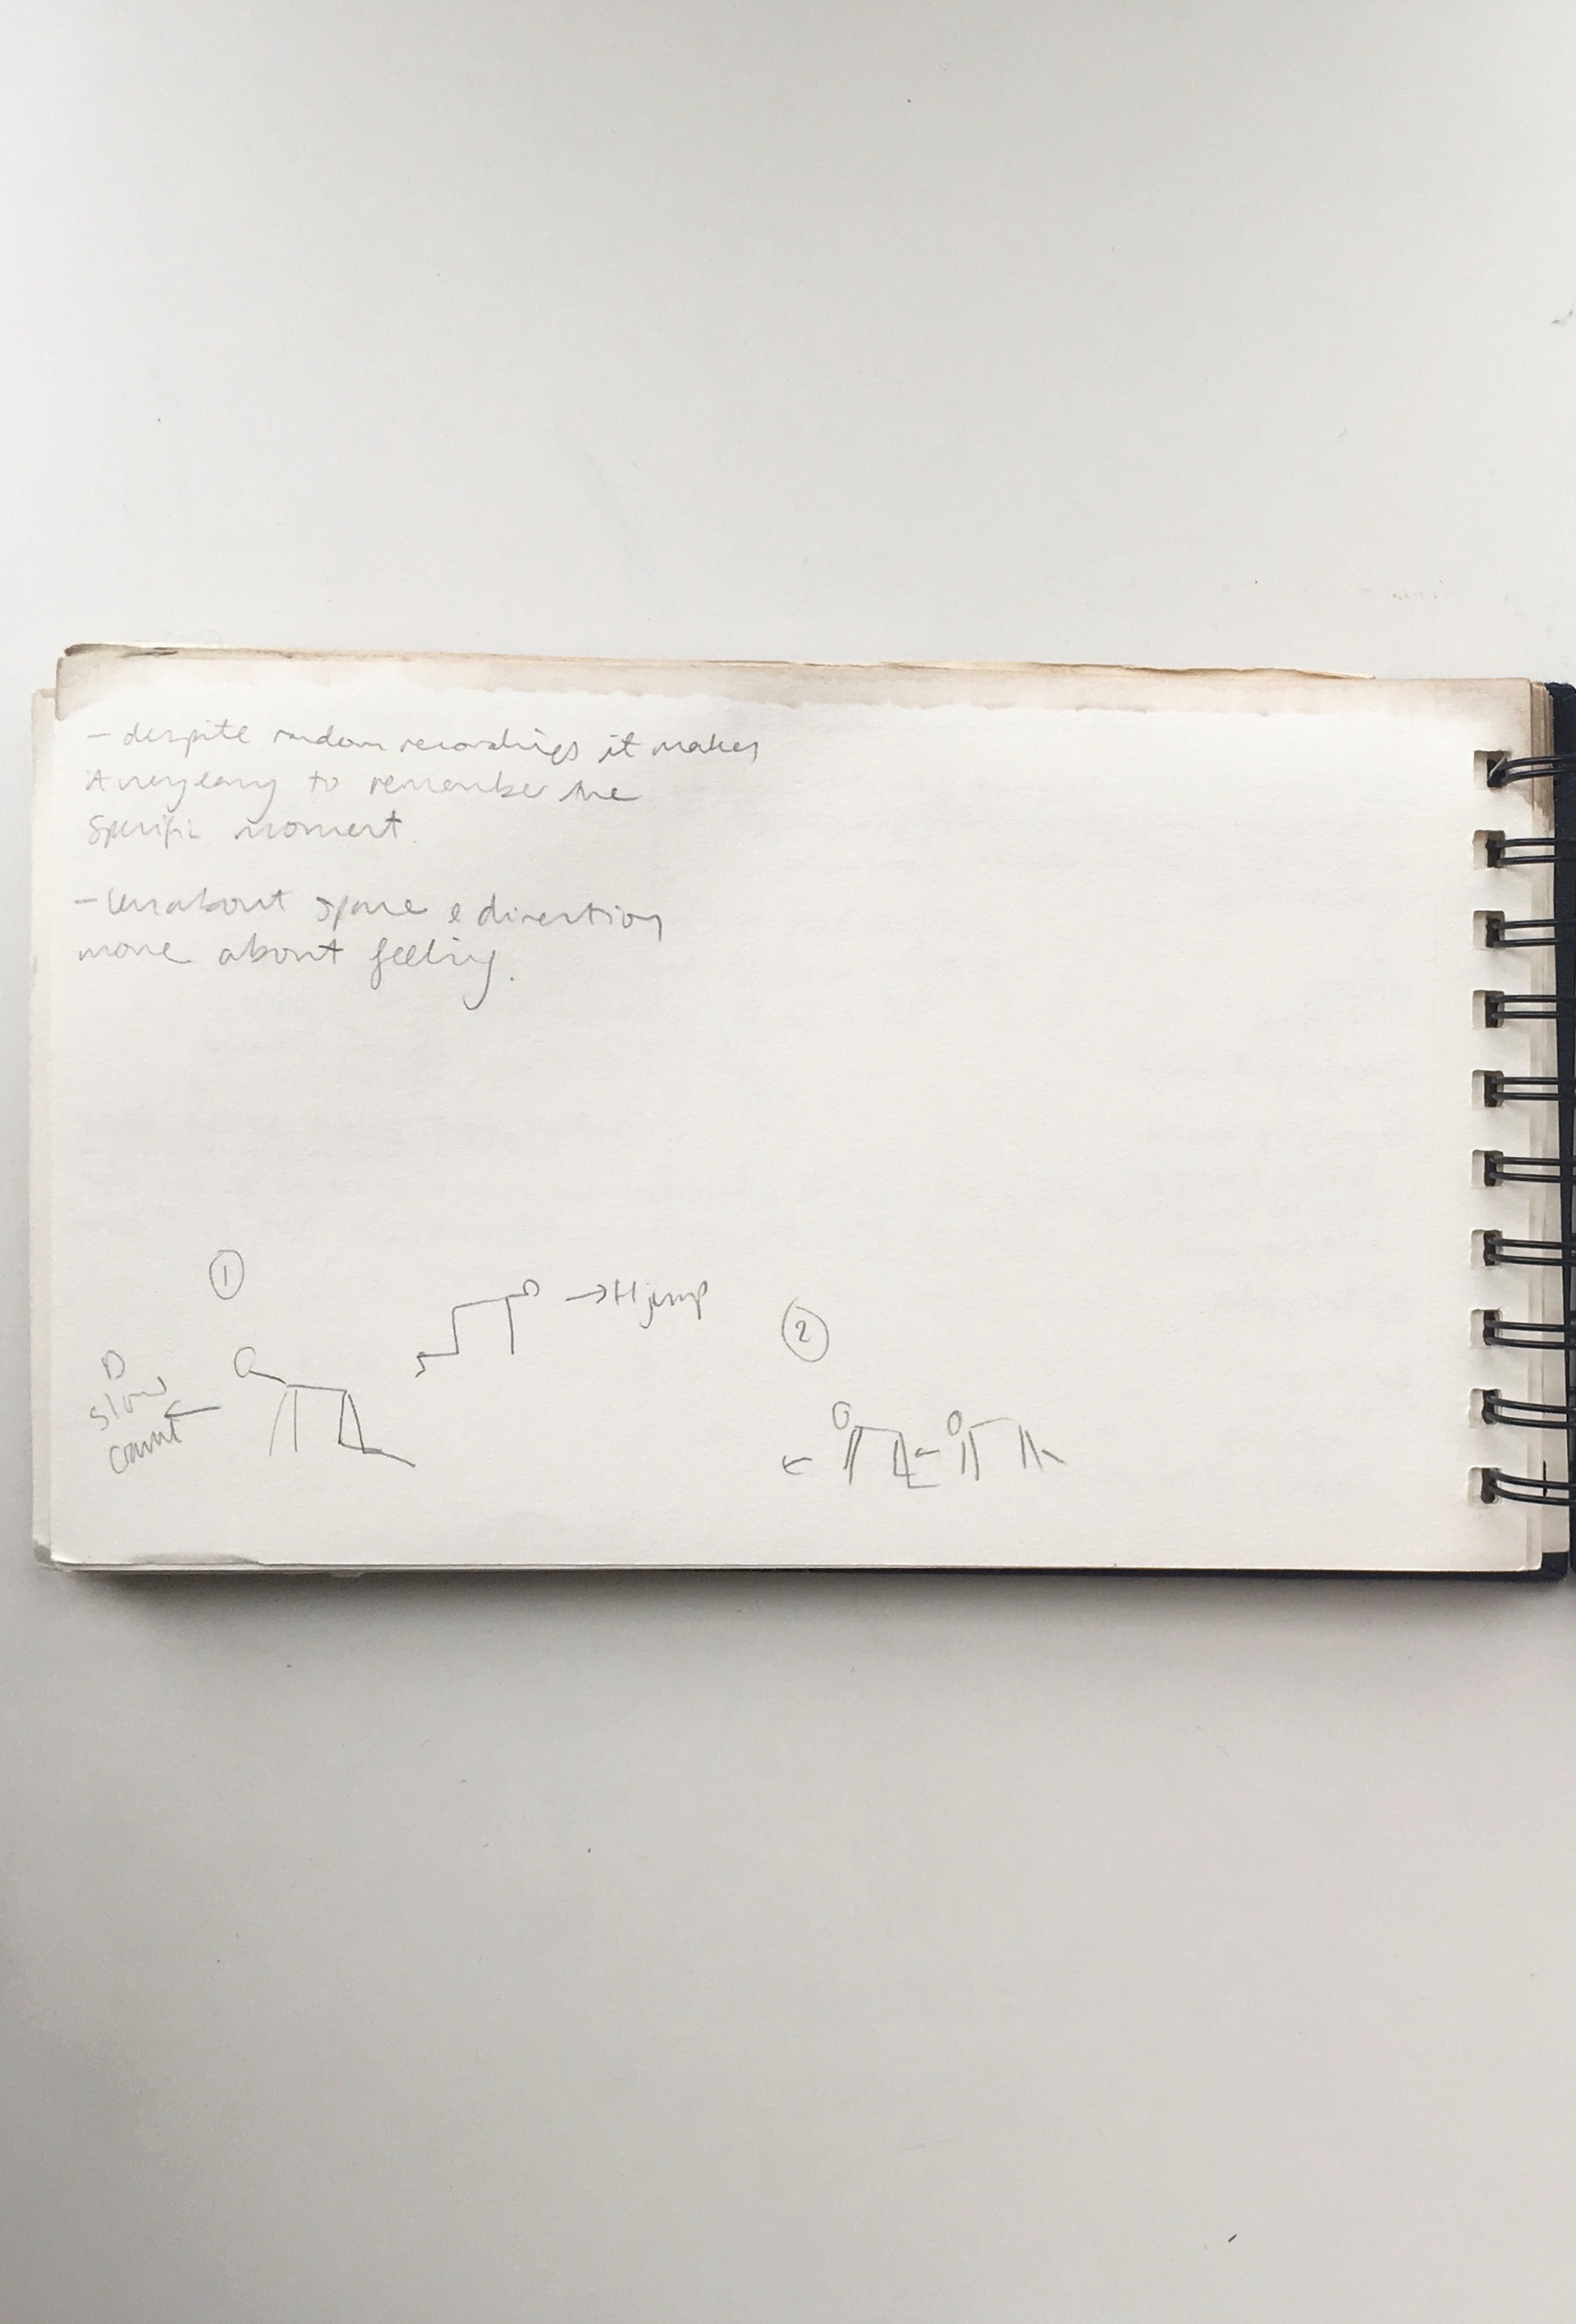 - despite random recordings it makes
it very easy to remember the
specific moment.
- less about space & direction
more about feeling.
①
→ H jump
②
D
slow
crawl